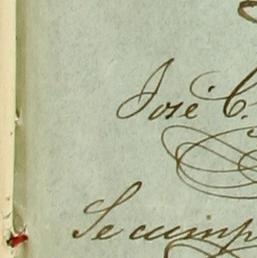 José C.
Se cump